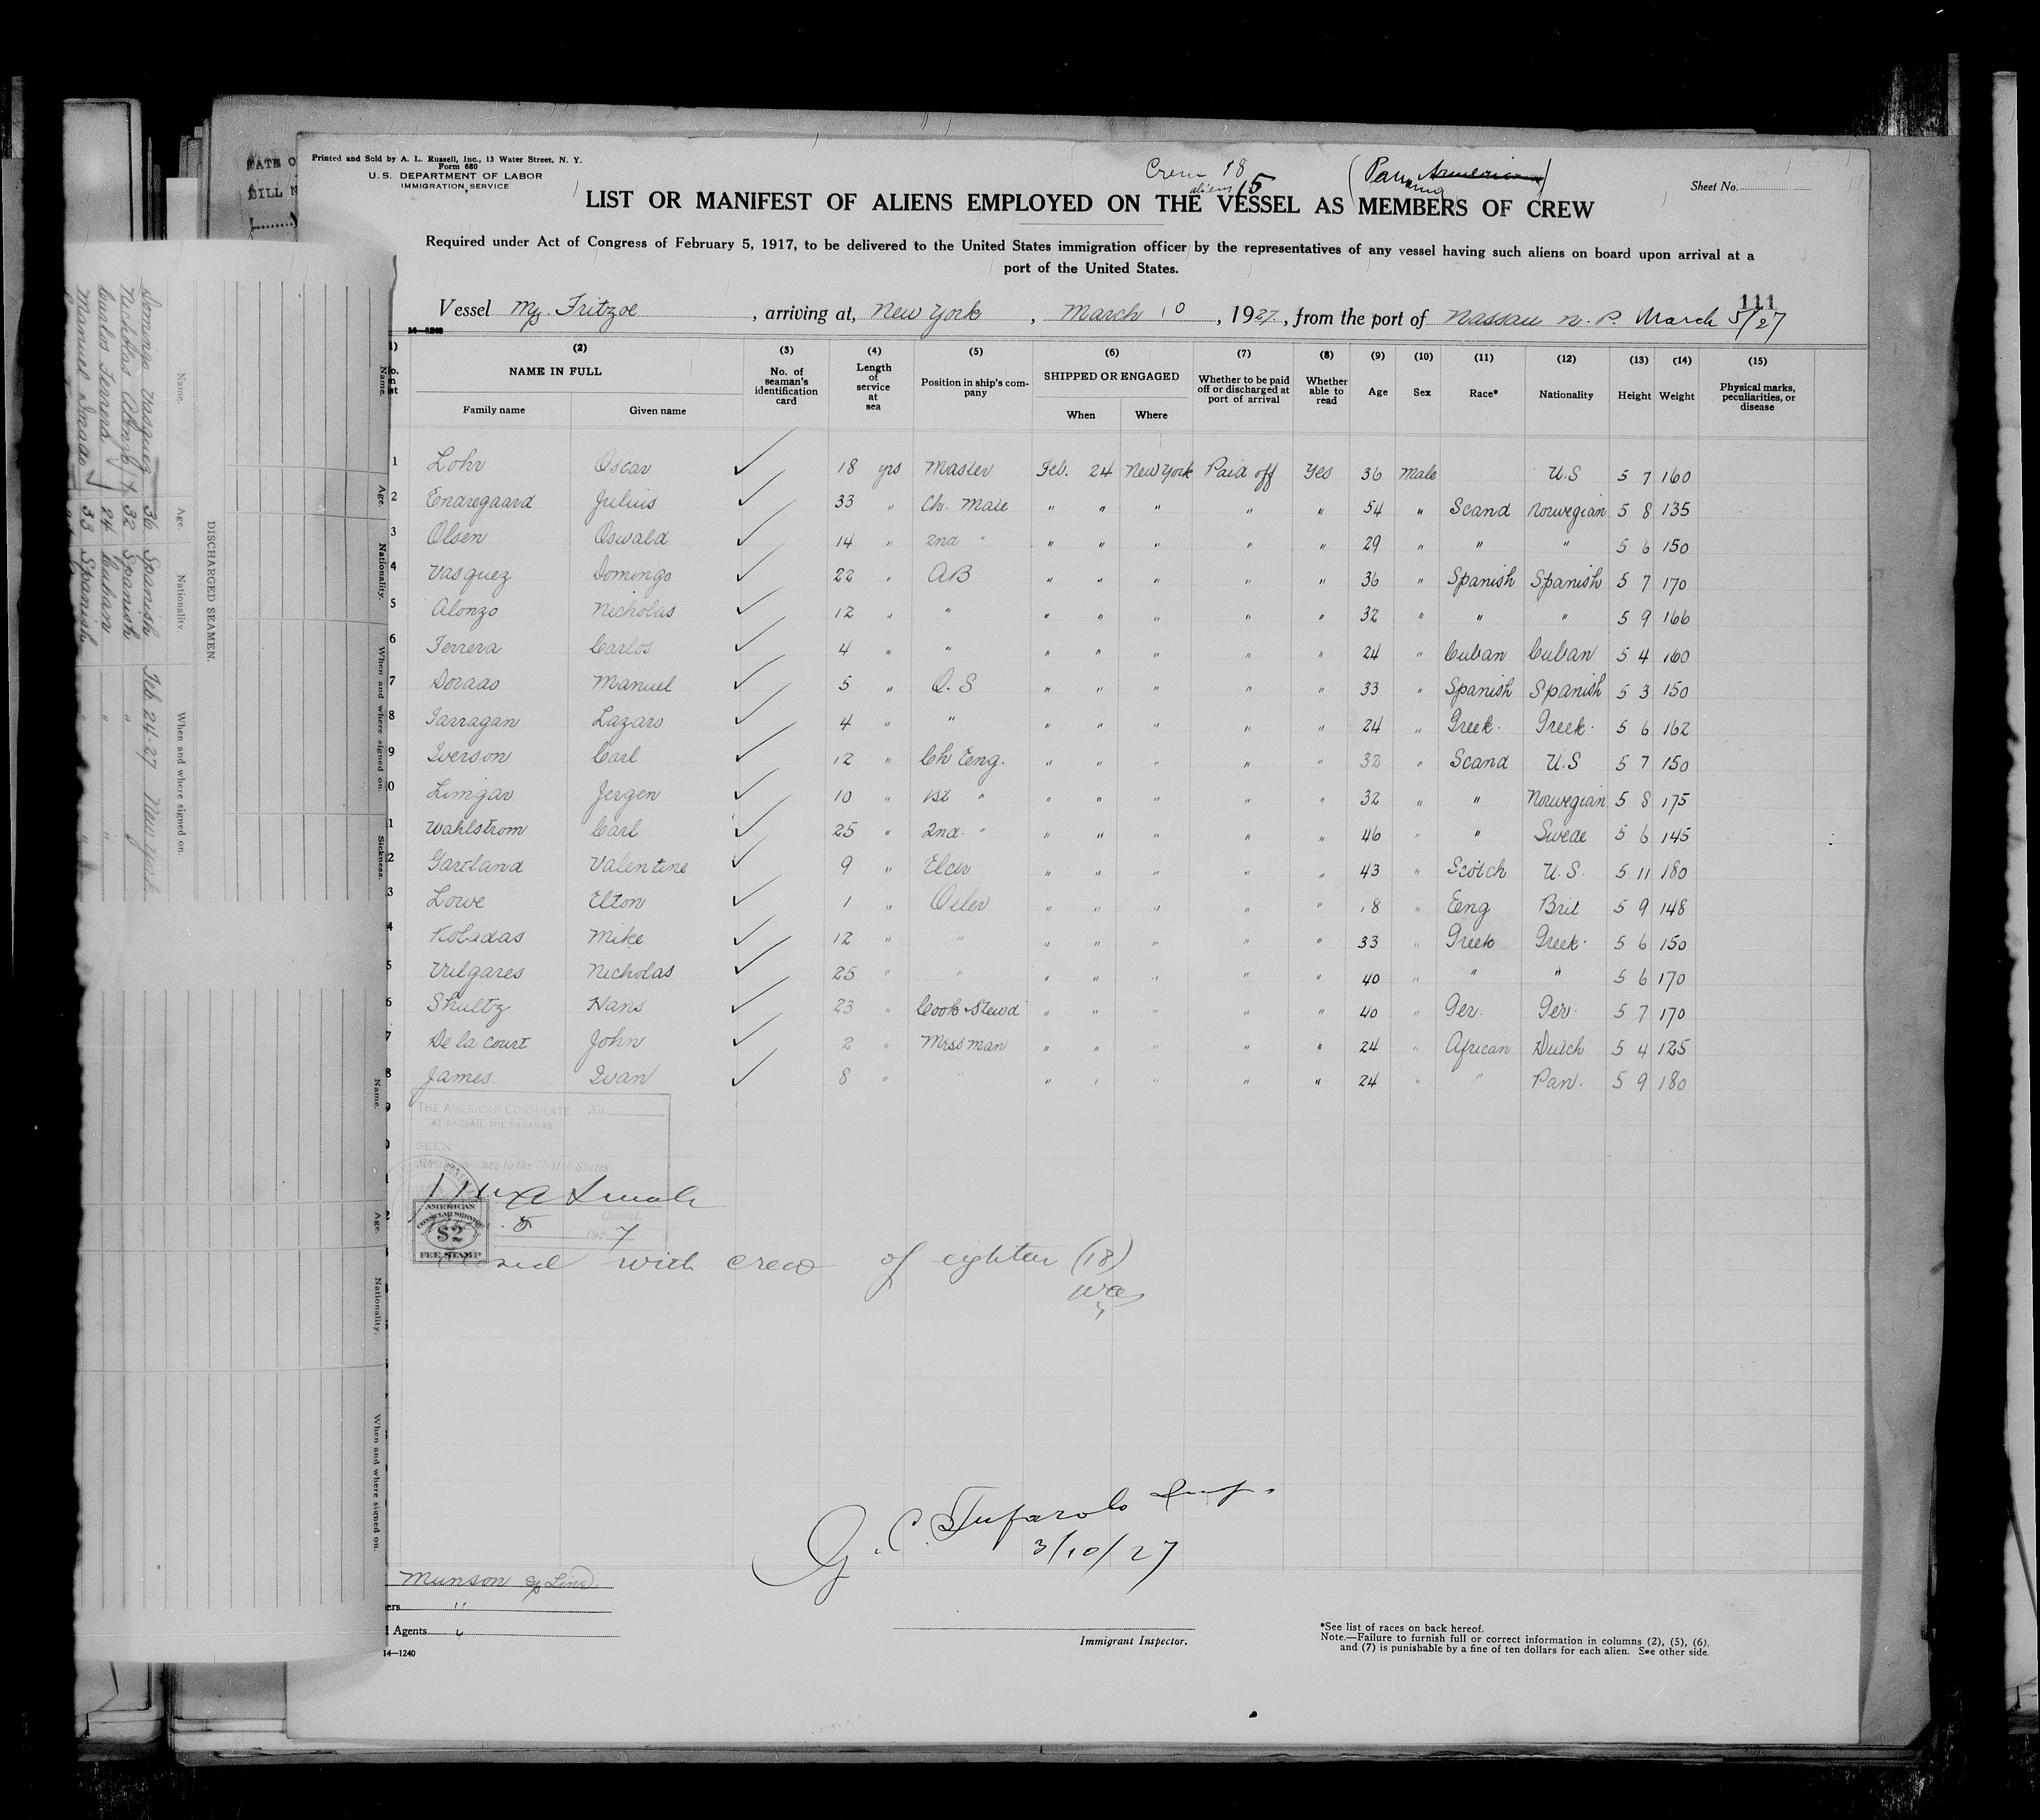 Printed and Sold by A. L. Russell, Inc., 13 Water Street, N. Y.
Form 680
U. S. DEPARTMENT OF LABOR
IMMIGRATION SERVICE
Crew 18
aliens 15
(Panama American)
Sheet No.
LIST OR MANIFEST OF ALIENS EMPLOYED ON THE VESSEL AS MEMBERS OF CREW
Required under Act of Congress of February 5, 1917, to be delivered to the United States immigration officer by the representatives of any vessel having such aliens on board upon arrival at a
port of the United States.
111
Vessel Fritzoe, arriving at, New York, March 10, 1927, from the port of Nassau N. P. March 5/27
14-1240
(1) (2) (3) (4) (5) (6) (7) (8) (9) (10) (11) (12) (13) (14) (15)
NAME IN FULL No. of seaman's identification card Length of service at sea Position in ship's company SHIPPED OR ENGAGED Whether to be paid off or discharged at port of arrival Whether able to read Age Sex Race* Nationality Height Weight Physical marks, peculiarities, or disease
Family name Given name When Where
1 Lohr Oscar ✓ 18 yrs Master Feb. 24 New York Paid off Yes 36 Male U.S 5 7 160
2 Endregaard Julius ✓ 33 " Ch. Mate " " " " " 54 " Scand Norwegian 5 8 135
3 Olsen Oswald ✓ 14 " 2nd " " " " " " 29 " " " 5 6 150
4 Vasquez Domingo ✓ 22 " AB " " " " " 36 " Spanish Spanish 5 7 170
5 Alonzo Nicholas ✓ 12 " " " " " " " 32 " " " 5 9 166
6 Ferrera Carlos ✓ 4 " " " " " " " 24 " Cuban Cuban 5 4 160
7 Dorado Manuel ✓ 5 " O.S " " " " " 33 " Spanish Spanish 5 3 150
8 Sarragan Lazaro ✓ 4 " " " " " " " 24 " Greek. Greek. 5 6 162
9 Iverson Carl ✓ 12 " Ch Eng. " " " " " 32 " Scand U.S 5 7 150
0 Limgar Jergen ✓ 10 " 1st " " " " " " 32 " " Norwegian 5 8 175
1 Wahlstrom Carl ✓ 25 " 2nd. " " " " " " 46 " " Swede 5 6 145
2 Gartland Valentine ✓ 9 " Elctr " " " " " 43 " Scotch U.S. 5 11 180
3 Lowe Elton ✓ 1 " Oiler " " " " " 18 " Eng Brit 5 9 148
4 Koladas Mike ✓ 12 " " " " " " " 33 " Greek Greek. 5 6 150
5 Vulgares Nicholas ✓ 25 " " " " " " " 40 " " " 5 6 170
6 Shultz Hans ✓ 23 " Cook & Stewd " " " " " 40 " Ger. Ger. 5 7 170
7 De la court John ✓ 2 " Messman " " " " " 24 " African Dutch 5 4 125
8 James. Ivan ✓ 8 " " " " " " " 24 " " Pan. 5 9 180
9
THE AMERICAN CONSULATE No.
AT NASSAU, THE BAHAMAS
SEEN
journey to the United States.
Consul.
5 1927
AMERICAN
CONSULAR SERVICE
$2
FEE STAMP
Closed with crew of eighteen (18)
3/10/27
Munson SS Line
ers "
l Agents "
14-1240
Immigrant Inspector.
*See list of races on back hereof.
Note.—Failure to furnish full or correct information in columns (2), (5), (6),
and (7) is punishable by a fine of ten dollars for each alien. See other side.
DISCHARGED SEAMEN.
Name. Age. Nationality. When and where signed on.
Domingo Vasquez 36 Spanish Feb 24-27 New York
Nicholas Alonzo 32 Spanish " "
Carlos Ferrera 24 Cuban " "
Manuel Dorado 33 Spanish " "
Name. Age. Nationality. When and where signed on. Sickness.
Name. Age. Nationality. When and where signed on.